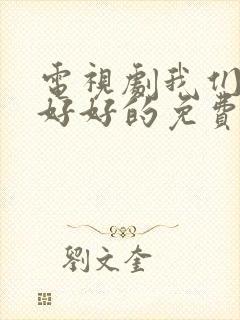 電視劇我们
好好的免費
劉文奎